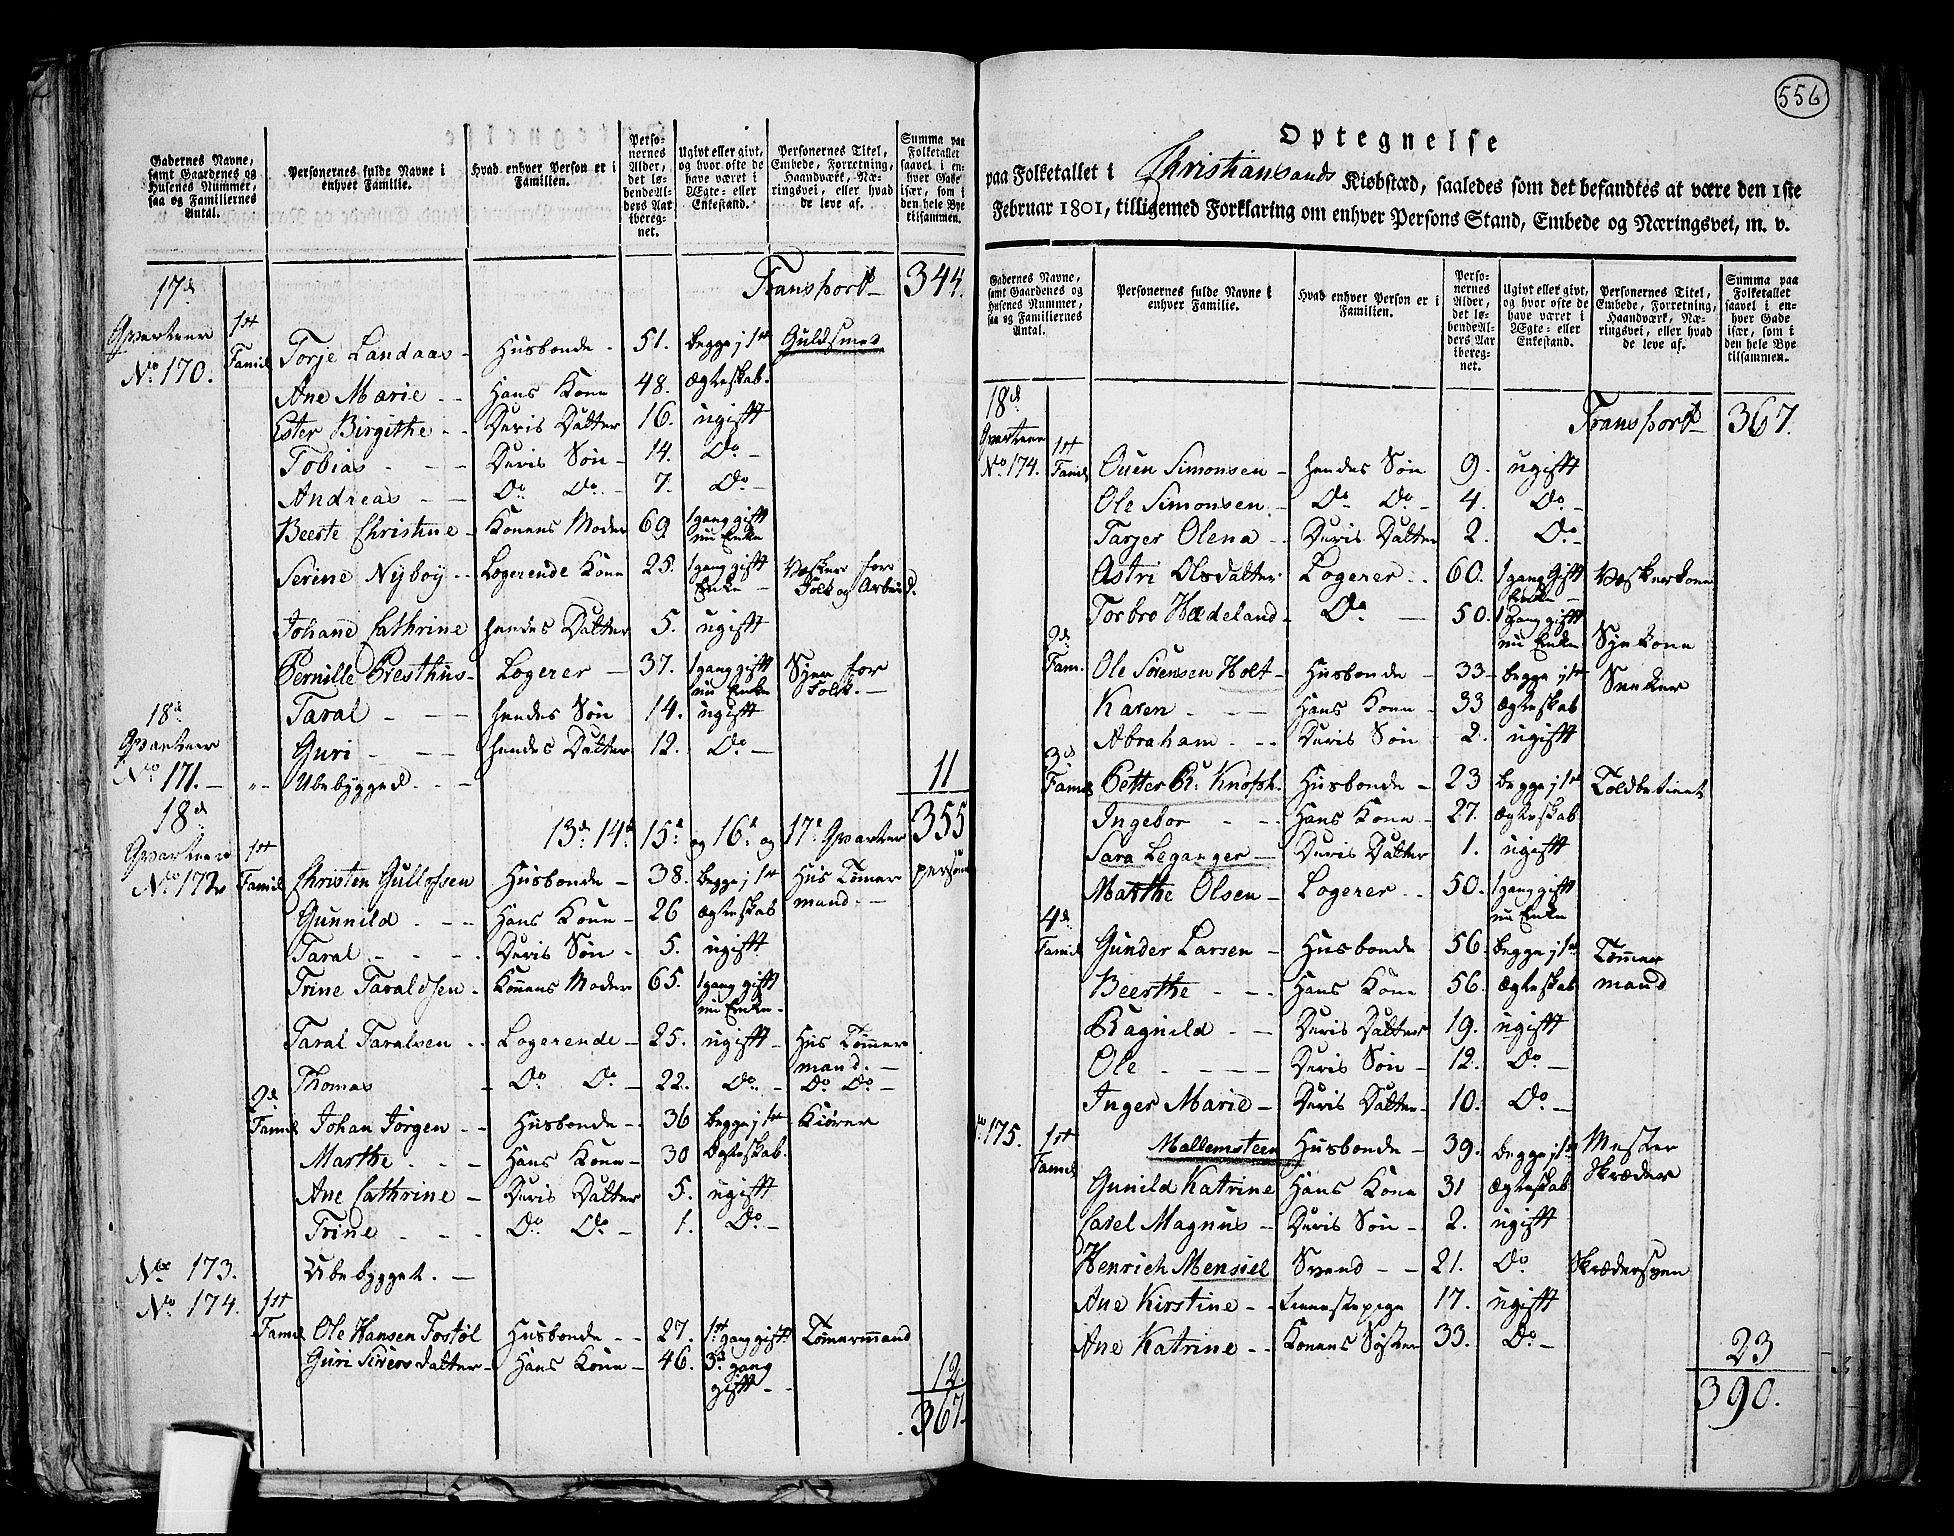 Gadernes Navne, samt Gaardenes og Husenes Nummer, saa og Familiernes Antal.
Personernes fulde Navne i enhver Familie.
Hvad enhver Person er i Familien.
Personernes Alder, det løbendeAlders Aar iberegnet.
Ugivt eller givt, og hvor ofte de have været i Ægte- eller Enkestand.
Personernes Titel, Embede, Forretning, Haandværk, Næringsvei, eller hvad de leve af.
Summa paa Folketallet saavel i enhver Gade især, som i den hele Bye tilsammen.
Transport 344.
17de Qvarteer No. 170. 1st Famil Torje Landaas - Husbonde - 51. begge i 1st Guldsmed
Ane Marie - - Hans Kone 48. Ægteskab.
Ester Birgithe - - Deris Datter 16. ugift
Tobias - - - Deris Søn - 14. Do -
Andreas - - Do Do - 7. Do -
Beeste Christine - Konens Moder 69 1 gang gift nu Enke
Serine Nyboy - - Logerende Kone 25. 1 gang gift Enke - Vasker for Folk og Arbeid.
Johane Cathrine hendes Datter 5. ugift
Pernille Presthus - Logerer - 37. 1 gang gift nu Enke Syer for Folk. -
Taral - - - hendes Søn 14. ugift
Guri - - - hendes Datter 12. Do -
18d Qvarteer No 171. - " - Ubebygged - - - 11
13d 14d 15d og 16d og 17d Qvarter 355 persun
18d Qvarteer No 172 1st Famil Christen Gullofsen Husbonde - 38. begge i 1st Hus Tømer mand. -
Gunnild - - - Hans Kone - 26 Ægteskab
Taral - - - Deris Søn - 5. ugift
Trine Taraldsen - Konens Moder 65. 1 gang gift nu Enke -
Taral Taralsen - - Logerende - 25. ugift - Hus Tømer mand. -
Thomas - Do Do - 22. Do - Do Do -
2d Famil Johan Jörgen - - Husbonde - 36 begge i 1st Kiører
Marthe - - - Hans Kone - 30 Ægteskab.
Ane Cathrine - Deris Datter 5. ugift
Trine - - - Do Do - 1. Do -
No 173. Ubebygget. -
No 174. 1st Famil Ole Hansen Tostøl Husbonde - - 27. 1st gang gift Tømermand
Guri Sivers datter - Hans Kone - 46. 3d gang gift - - 12.
367.
556
Optegnelse
paa Folketallet i Christiansands Kiøbstæd, saaledes som det befandtes at være den 1ste
Februar 1801, tilligemed Forklaring om enhver Persons Stand, Embede og Næringsvei, m. v.
Gadernes Navne, samt Gaardenes og Husenes Nummer, saa og Familiernes Antal.
Personernes fulde Navne i enhver Familie.
Hvad enhver Person er i Familien.
Personernes Alder, det løbendeAlders Aar iberegnet.
Ugivt eller givt, og hvor ofte de have været i Ægte- eller Enkestand.
Personernes Titel, Embede, Forretning, Haandværk, Næringsvei, eller hvad de leve af.
Summa paa Folketallet saavel i enhver Gade især, som i den hele Bye tilsammen.
Transport 367.
18d Qvarteer No 174. 1st Famil Ouen Simonsen - hendes Søn 9. ugift
Ole Simonsen - Do Do - 4. Do -
Tarjer Olena - - Deris Datter 2. Do -
Astri Olsdatter Logerer - - 60. 1 gang Gift Enke - Vaskerkone
Torbro Hædeland - Do - 50. 1 Gang gift nu Enke Syekone
2d Fam. Ole Sörensen Holt - Husbonde - 33 - begge i 1st Sneker
Karen - - - Hans Kone - 33 Ægteskab
Abraham - - - Deris Søn - 2. ugift
3d Famil Petter R. Knofsh. Husbonde - 23 begge i 1st Toldbetient
Ingebor - - - Hans Kone - 27. Ægteskab
Sara Leganger - Deris Datter 1. ugift
Marthe Olsen - Logerer - - 50. 1 gang gift nu Enke
4d Famil Gunder Larsen - Husbonde 56. begge i 1st Tømer mand
Beerthe - - - Hans Kone 56. Ægteskab
Ragnild - - Deris Datter 19. ugift
Ole - - - - Deris Søn - 12. Do -
Inger Marie - Deris Datter - 10. Do -
175. 1st Famil Mallemsteen Husbonde - 39. begge i 1st Mester Skræder
Gunild Katrine Hans Kone 31 Ægteskab
Carel Magnus - Deris Søn - 2. ugift
Henrich Mensiel Svend - - 21. Do Skrædersven
Ane Kirstine - - Tienestepige 17. ugift
Ane Katrine - - Konens Søster 33. Do - 23
390.